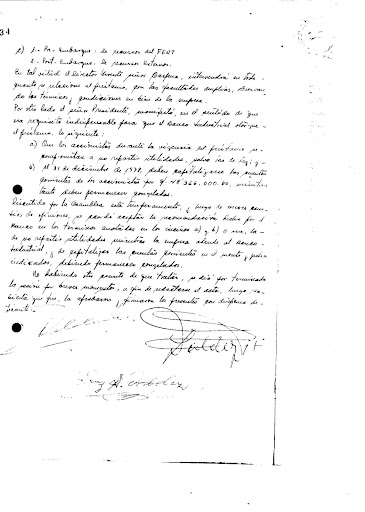 34
c) 1.- Pre-Embarque: de recursos del FENT
2.- Post-Embarque: de recursos externos.
En tal virtud el Director Gerente señor Barrera, intervendrá en todo
cuanto se relacione al préstamo, con las facultades amplias,
los términos y condiciones en bien de la empresa.
Por otro lado el señor Presidente, manifestó, en el sentido de que
un requisito indispensable para que el Banco Industrial otorgue
el préstamo, lo siguiente:
a) Que los accionistas durante la vigencia del préstamo se
comprometan a no repartir utilidades, salvo las de Ley; y
b) Al 31 de diciembre de 1977, deben capitalizarse las cuentas
corrientes de los accionistas por 366,000.00, mientras
tanto deben permanecer congeladas.
Discutido por la Asamblea este temperamento, y luego de
de opiniones, se acordó aceptar la recomendación hecha por el
Banco en los términos anotados en los incisos a) y b) o sea, la
de no repartir utilidades mientras la empresa adeude al Banco
Industrial, y de capitalizar las cuentas corrientes en el monto y fecha
indicados, debiendo permanecer congelados.
No habiendo otro asunto de que tratar, se dió por terminada
la sesión por breves momentos, a fin de redactarse el acta, luego
que fue, la aprobaron y firmaron los presentes con dispensa de